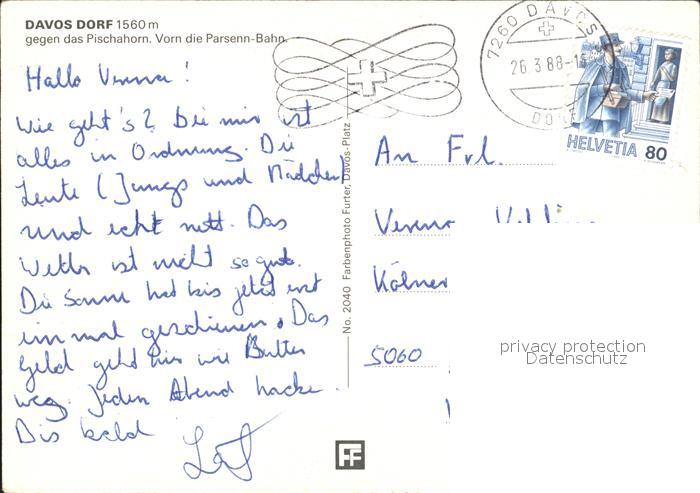 DAVOS DORF 1560 m
gegen das Pischahorn. Vorn die Parsenn-Bahn.
7260 DAVOS
26.3.88-15
DORF
HELVETIA 80
Hallo Verena!
Wie geht's? Bei mir ist
alles in Ordnung. Die
Leute (Jungs und Mädchen)
sind echt nett. Das
Wetter ist nicht so gut.
Die Sonne hat bis jetzt erst
einmal geschienen. Das
Geld geht hin wie Butter
weg. Jeden Abend
Bis bald
No. 2040 Farbenphoto Furter, Davos-Platz
An Frl.
Verena
Kölner
5060
privacy protection
Datenschutz
FF